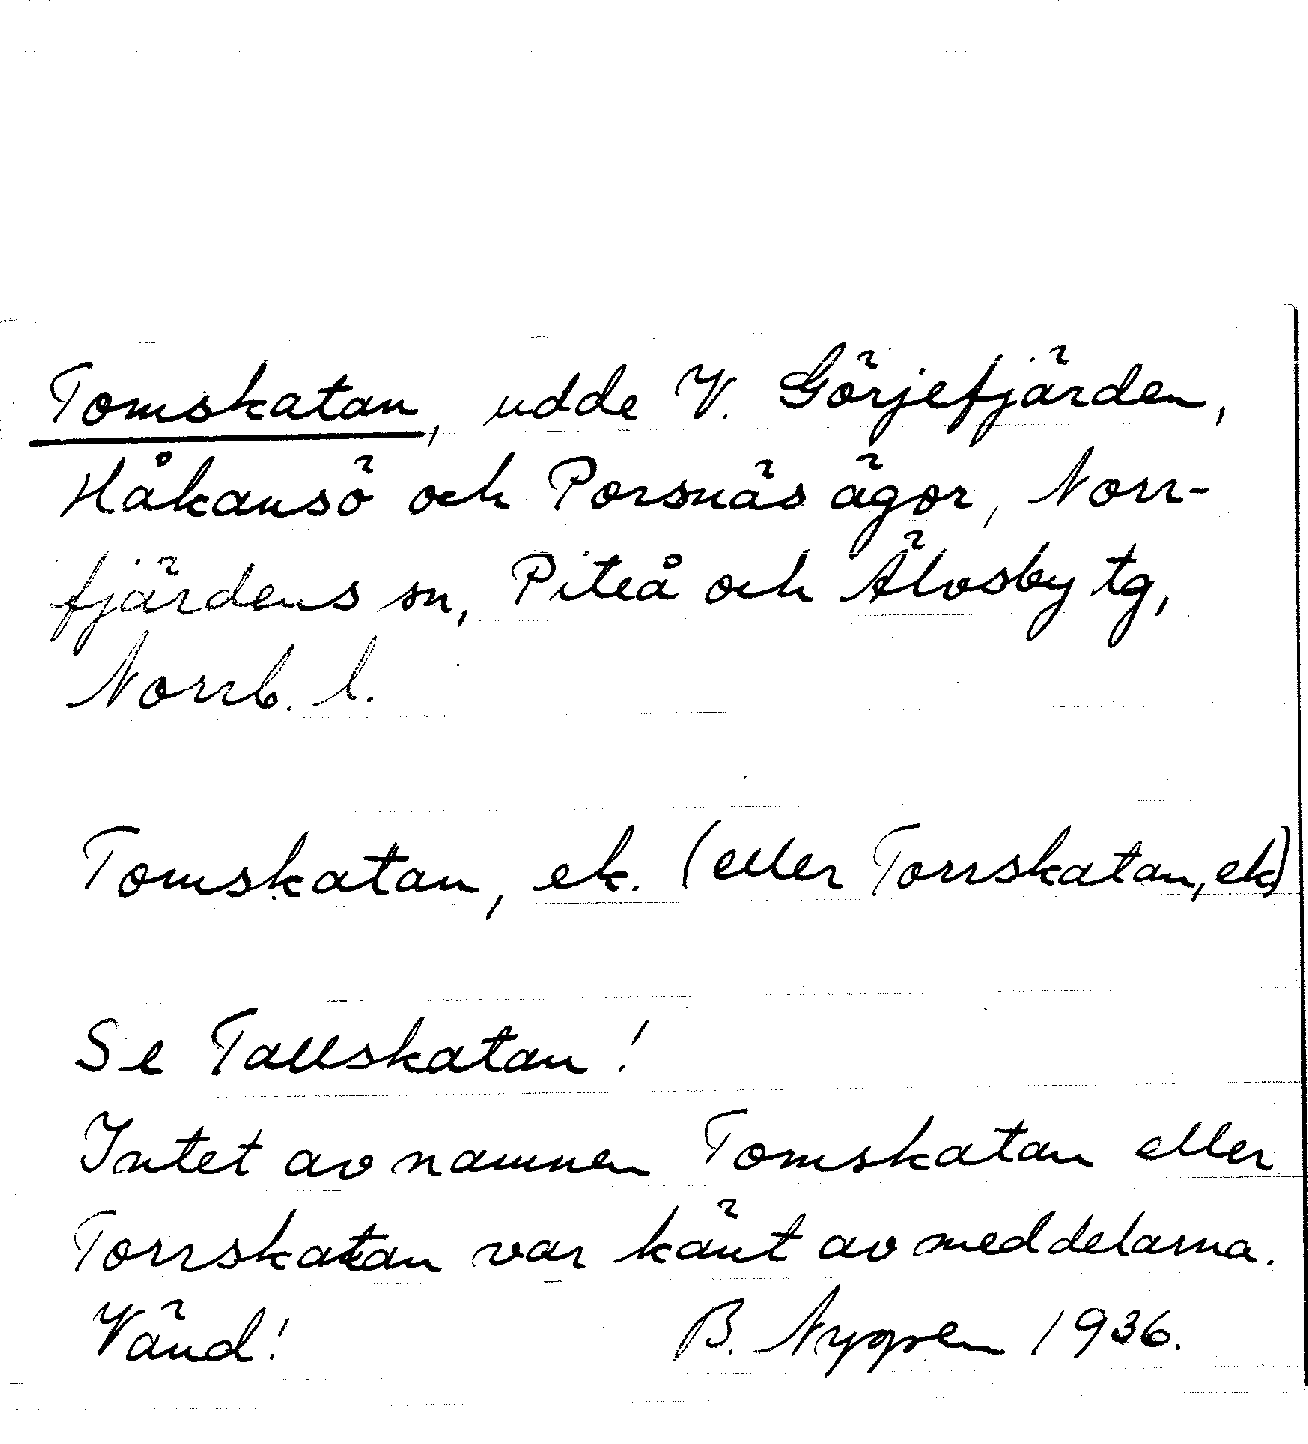 Tomskatan, udde V. Görjefjärden,
Håkansö och Porsnäs ägor, Norr-
fjärdens sn, Piteå och Älvsby tg,
Norrb. l.
Tomskatan, ek. (eller Torrskatan, ek)
Se Tallskatan!
Intet av namnen Tomskatan eller
Torrskatan var känt av meddelarna.
Vänd! B. Nygren 1936.